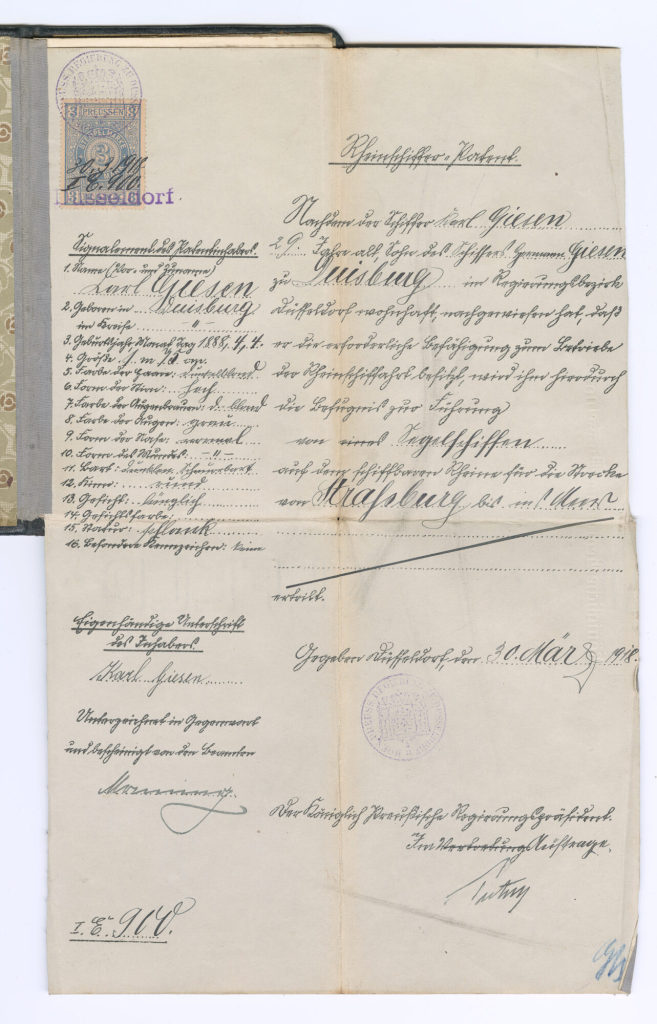 PREUSSEN
3
30/3 1918
I. E. 900.
Düsseldorf
Signalement des Patentinhabers.
1. Name (Vor- und Zuname)
Karl Giesen
2. Geboren in Duisburg
im Kreise -"-
3. Geburtsjahr Monat Tag 1888, 4, 4.
4. Größe 1 m 70 cm.
5. Farbe der Haare: dunkelblond
6. Form der Stirn: hoch
7. Farbe der Augenbrauen: d. blond
8. Farbe der Augen: grau
9. Form der Nase: normal
10. Form des Mundes: -"-
11. Bart: Schnurrbart
12. Kinn: rund
13. Gesicht: länglich
14. Gesichtsfarbe:
15. Statur: schlank
16. Besondere Kennzeichen: keine
Eigenhändige Unterschrift
des Inhabers.
Karl Giesen
Unterzeichnet in Gegenwart
und bescheinigt von dem Beamten
I. E. 900.
Rheinschiffer-Patent.
Nachdem der Schiffer Karl Giesen
29 Jahre alt, Sohn des Schiffers Hermann Giesen
zu Duisburg im Regierungsbezirk
Düsseldorf wohnhaft, nachgewiesen hat, daß
er die erforderliche Befähigung zum Betriebe
der Rheinschiffahrt besitzt, wird ihm hierdurch
die Befugnis zur Führung
von eines Segelschiffen
auf dem schiffbaren Rheine für die Strecke
von Straßburg bis ins Meer
erteilt.
Gegeben Düsseldorf, den 30. März 1918.
Der Königlich Preußische Regierungspräsident.
Im Vertretung Auftrage.